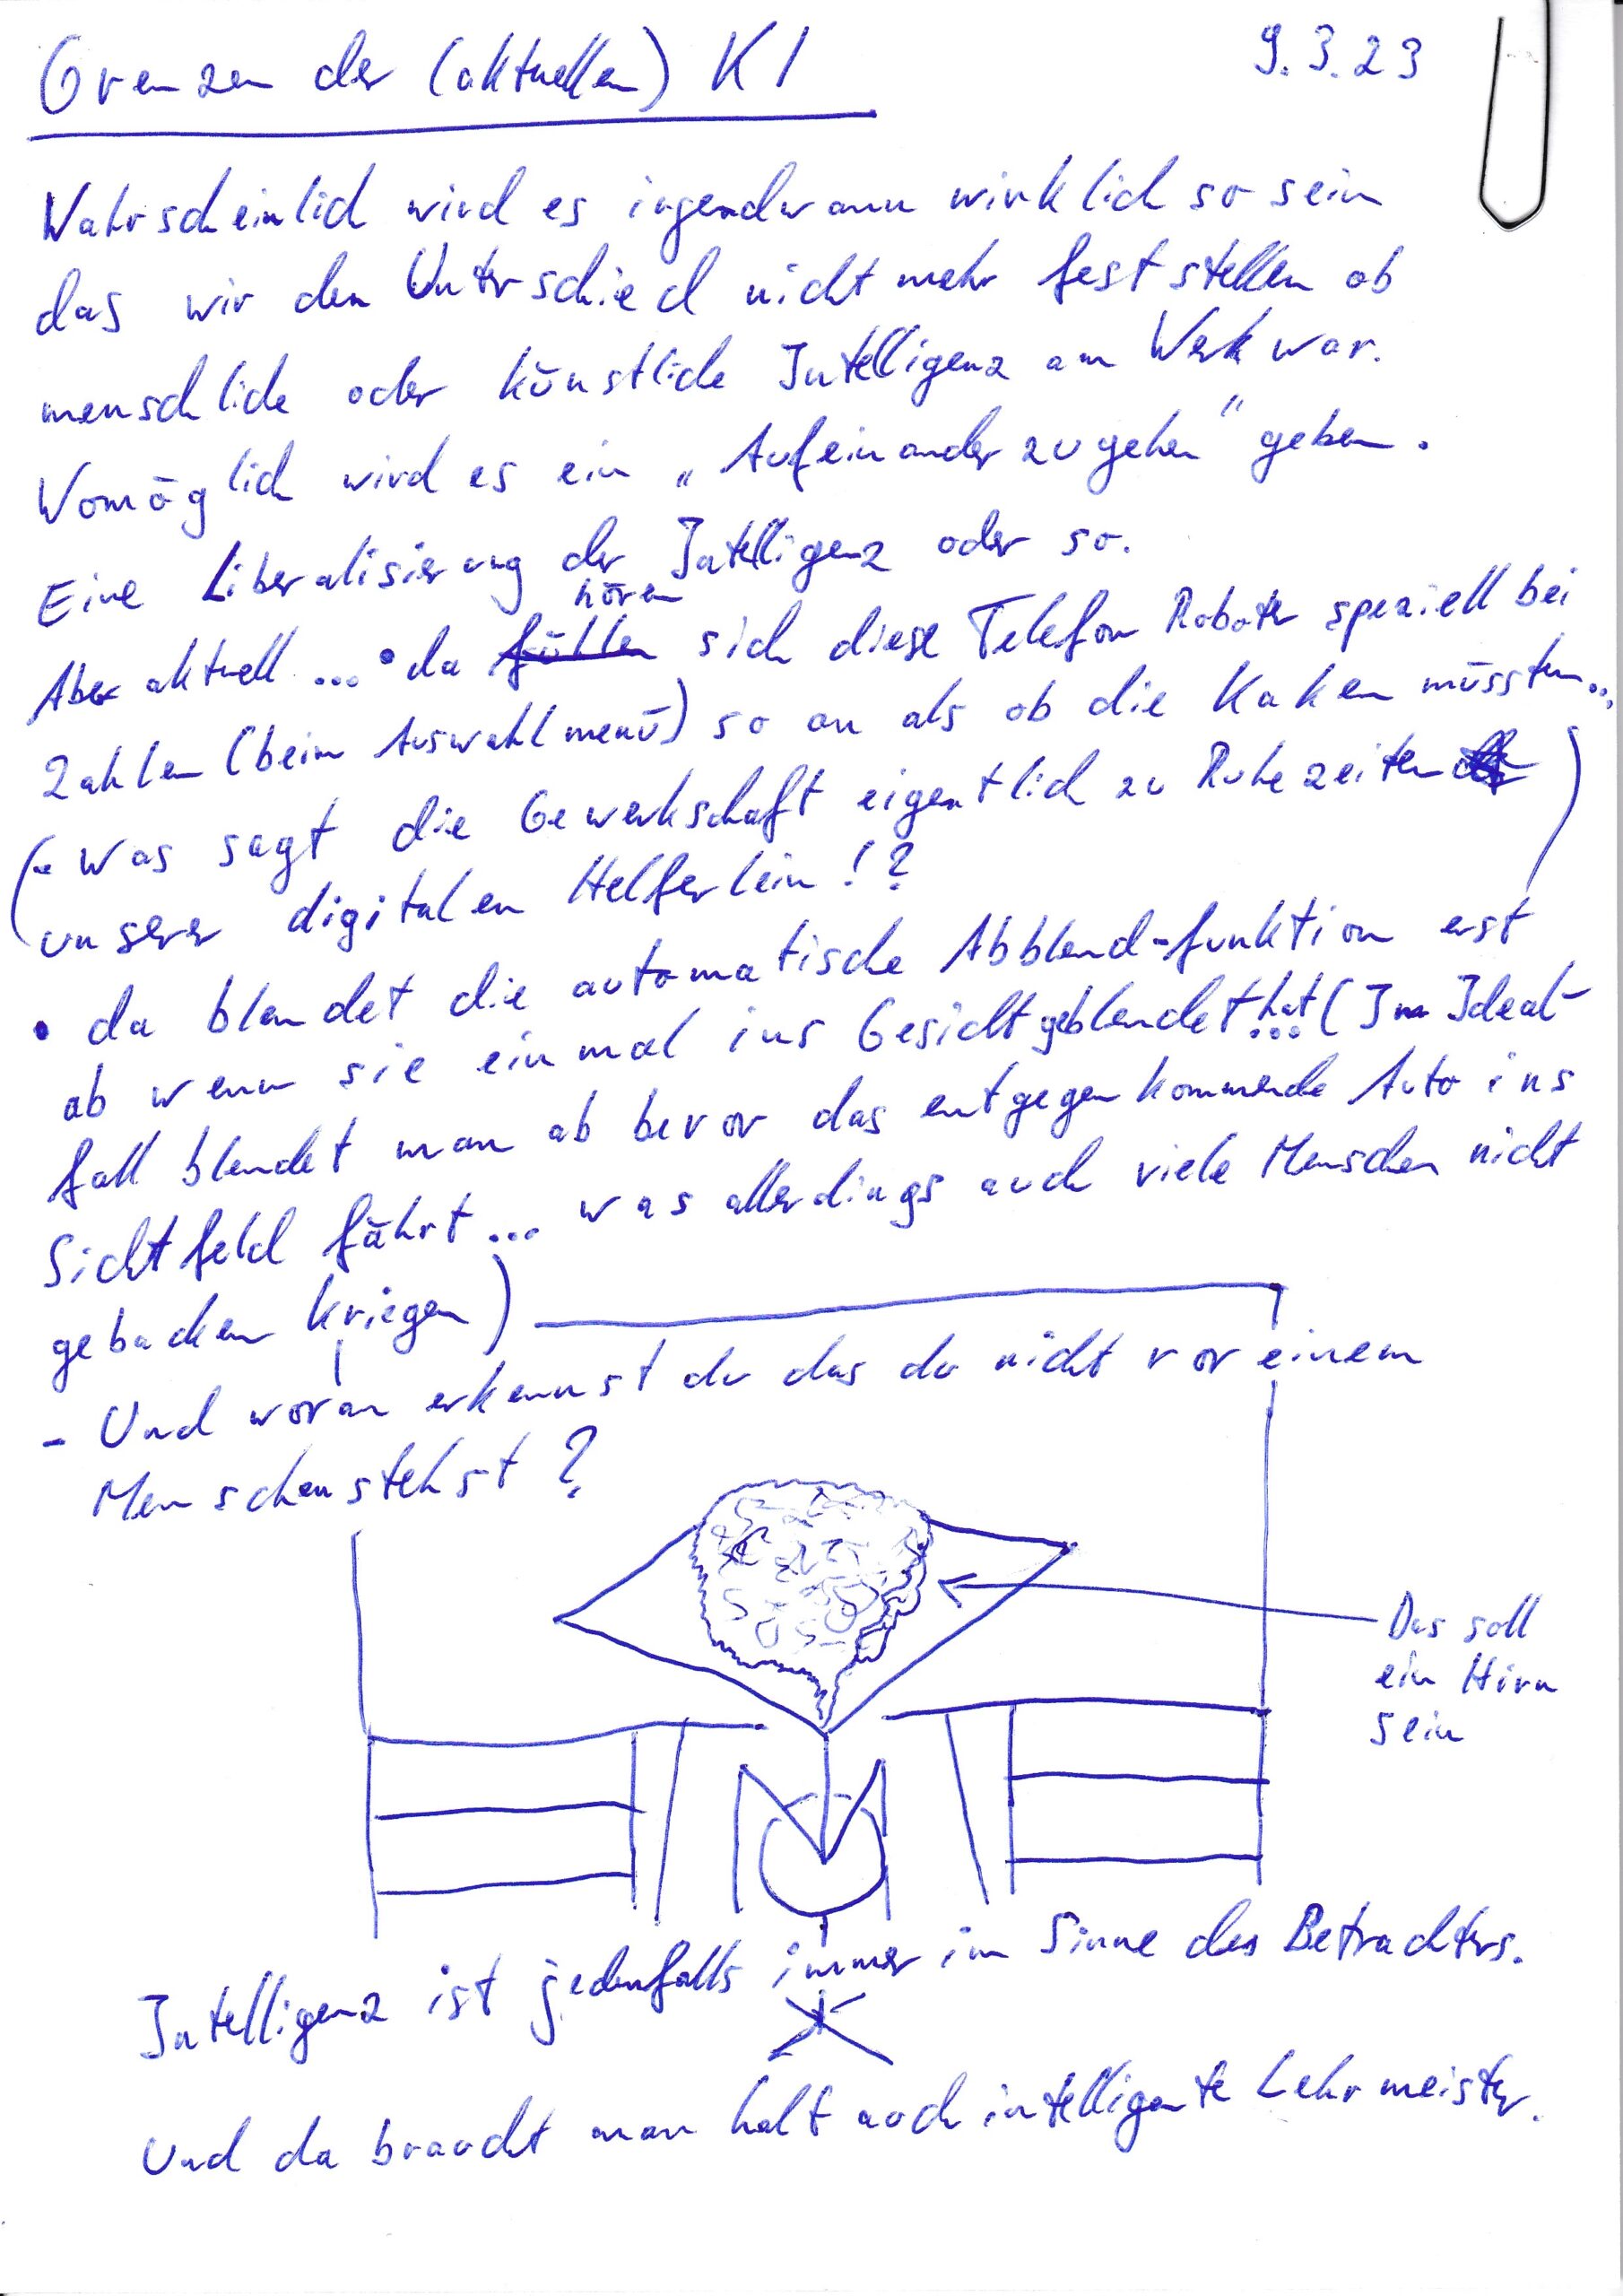 Grenzen der (aktuellen) KI
9.3.23
Wahrscheinlich wird es irgendwann wirklich so sein
das wir den Unterschied nicht mehr feststellen ob
menschliche oder künstliche Intelligenz am Werk war.
Womöglich wird es ein „Aufeinander zugehen" geben.
Eine Liberalisierung der Intelligenz oder so.
hören
Aber aktuell ... • da fühlen sich diese Telefon Roboter speziell bei
Zahlen (beim Auswahlmenü) so an als ob die Kaken müssten..
(- was sagt die Gewerkschaft eigentlich zu Ruhezeiten
unserer digitalen Helferlein!?)
• da blendet die automatische Abblend-funktion erst
ab wenn sie einmal ins Gesicht geblendet hat... (Im Ideal-
fall blendet man ab bevor das entgegenkommende Auto ins
Sichtfeld fährt... was allerdings auch viele Menschen nicht
gebacken kriegen)
- Und woran erkennst du das du nicht vor einem
Menschen stehst?
Das soll
ein Hirn
sein
Intelligenz ist jedenfalls immer im Sinne des Betrachters.
Und da braucht man halt auch intelligente Lehrmeister.